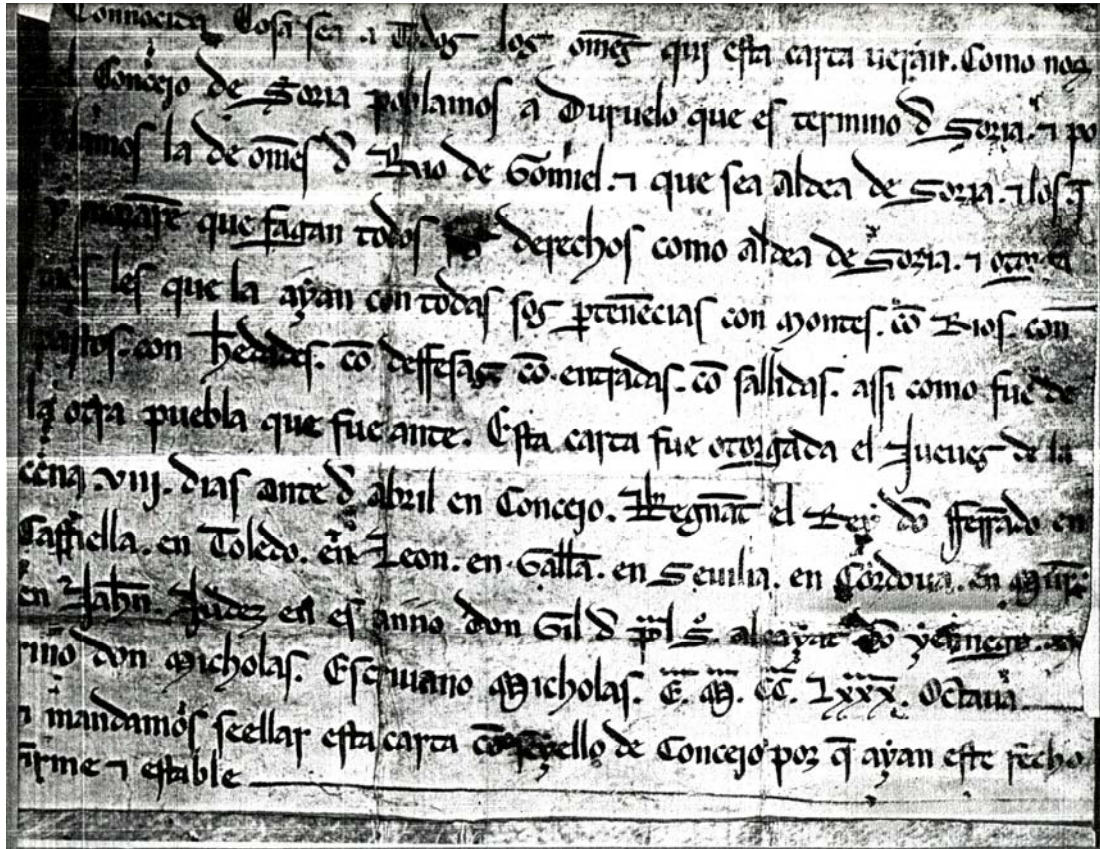 Connocida Cosa sea a Todos los om̄es qui esta carta uerán. Como nos
el Concejo de Soria poblamos a Duruelo que es termino đ Soria. ⁊ po
blamos la de om̄es đ Rio de Gomiel. ⁊ que sea aldea de Soria. ⁊ los q̄
y morarē que fagan todos derechos como aldea de Soria. ⁊ otorga
mos les que la ayan con todas sos ptenēcias con montes. cō Rios. con
pastos. con hedades. cō deffesas cō entradas. cō sallidas. assi como fue de
la otra puebla que fue ante. Esta carta fue otorgada el Jueues de la
cena .viii. dias ante đ abril en Concejo. Regnāt el Rey dō fferrādo en
Castiella. en Toledo. en Leon. en Gallā. en Seuilia. en Cordoua. en Mur
en Jahn. Judez en es anno don Gil đ alcayat dō
rino don Micholas. Escriuano Micholas. E. M. CC. Lxxx. Octaua
mandamos seellar esta carta cō seyello de Concejo por q̄ ayan este fecho
firme ⁊ estable